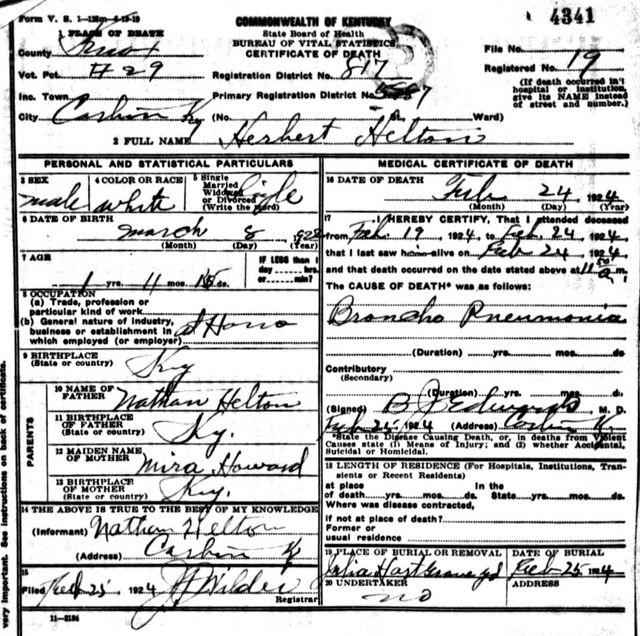 Form V. S. 1-125m-4-19-19
4341
COMMONWEALTH OF KENTUCKY
State Board of Health
BUREAU OF VITAL STATISTICS
CERTIFICATE OF DEATH
1 PLACE OF DEATH
County Knox
Vot. Pct. #29
Inc. Town
City Corbin Ky (No. St., Ward)
Registration District No. 817
Primary Registration District No.
File No.
Registered No. 19
(If death occurred in a hospital or institution, give its NAME instead of street and number.)
2 FULL NAME Herbert Helton
PERSONAL AND STATISTICAL PARTICULARS
3 SEX male
4 COLOR OR RACE white
5 Single Married Widowed or Divorced (Write the word) Single
6 DATE OF BIRTH March 8, 1922
(Month) (Day) (Year)
7 AGE 1 yrs. 11 mos. ds.
IF LESS than 1 day hrs. or min.?
8 OCCUPATION
(a) Trade, profession or particular kind of work
(b) General nature of industry, business or establishment in which employed (or employer) at Home
9 BIRTHPLACE (State or country) Ky
PARENTS
10 NAME OF FATHER Nathan Helton
11 BIRTHPLACE OF FATHER (State or country) Ky.
12 MAIDEN NAME OF MOTHER Mira Howard
13 BIRTHPLACE OF MOTHER (State or country) Ky.
14 THE ABOVE IS TRUE TO THE BEST OF MY KNOWLEDGE
(Informant) Nathan Helton
(Address) Corbin Ky
15
Filed Feb 25, 1924 Wilder
Registrar
11-3184
MEDICAL CERTIFICATE OF DEATH
16 DATE OF DEATH Feb 24, 1924
(Month) (Day) (Year)
17 I HEREBY CERTIFY, That I attended deceased
from Feb 19, 1924, to Feb. 24, 1924,
that I last saw him alive on Feb 24, 1924,
and that death occurred on the date stated above at 11 a m.
The CAUSE OF DEATH* was as follows:
Broncho Pneumonia
(Duration) yrs. mos. ds
Contributory
(Secondary)
(Duration) yrs. mos. ds
(Signed) B J Edwards, M. D.
Feb 25, 1924 (Address) Corbin K
*State the Disease Causing Death, or, in deaths from Violent Causes state (1) Means of Injury; and (2) whether Accidental, Suicidal or Homicidal.
18 LENGTH OF RESIDENCE (For Hospitals, Institutions, Transients or Recent Residents)
at place of death yrs. mos. ds. In the State yrs. mos. ds.
Where was disease contracted,
If not at place of death?
Former or usual residence
19 PLACE OF BURIAL OR REMOVAL Julia Hart Grave yd
DATE OF BURIAL Feb 25, 1924
20 UNDERTAKER no
ADDRESS
very important. See instructions on back of certificate.